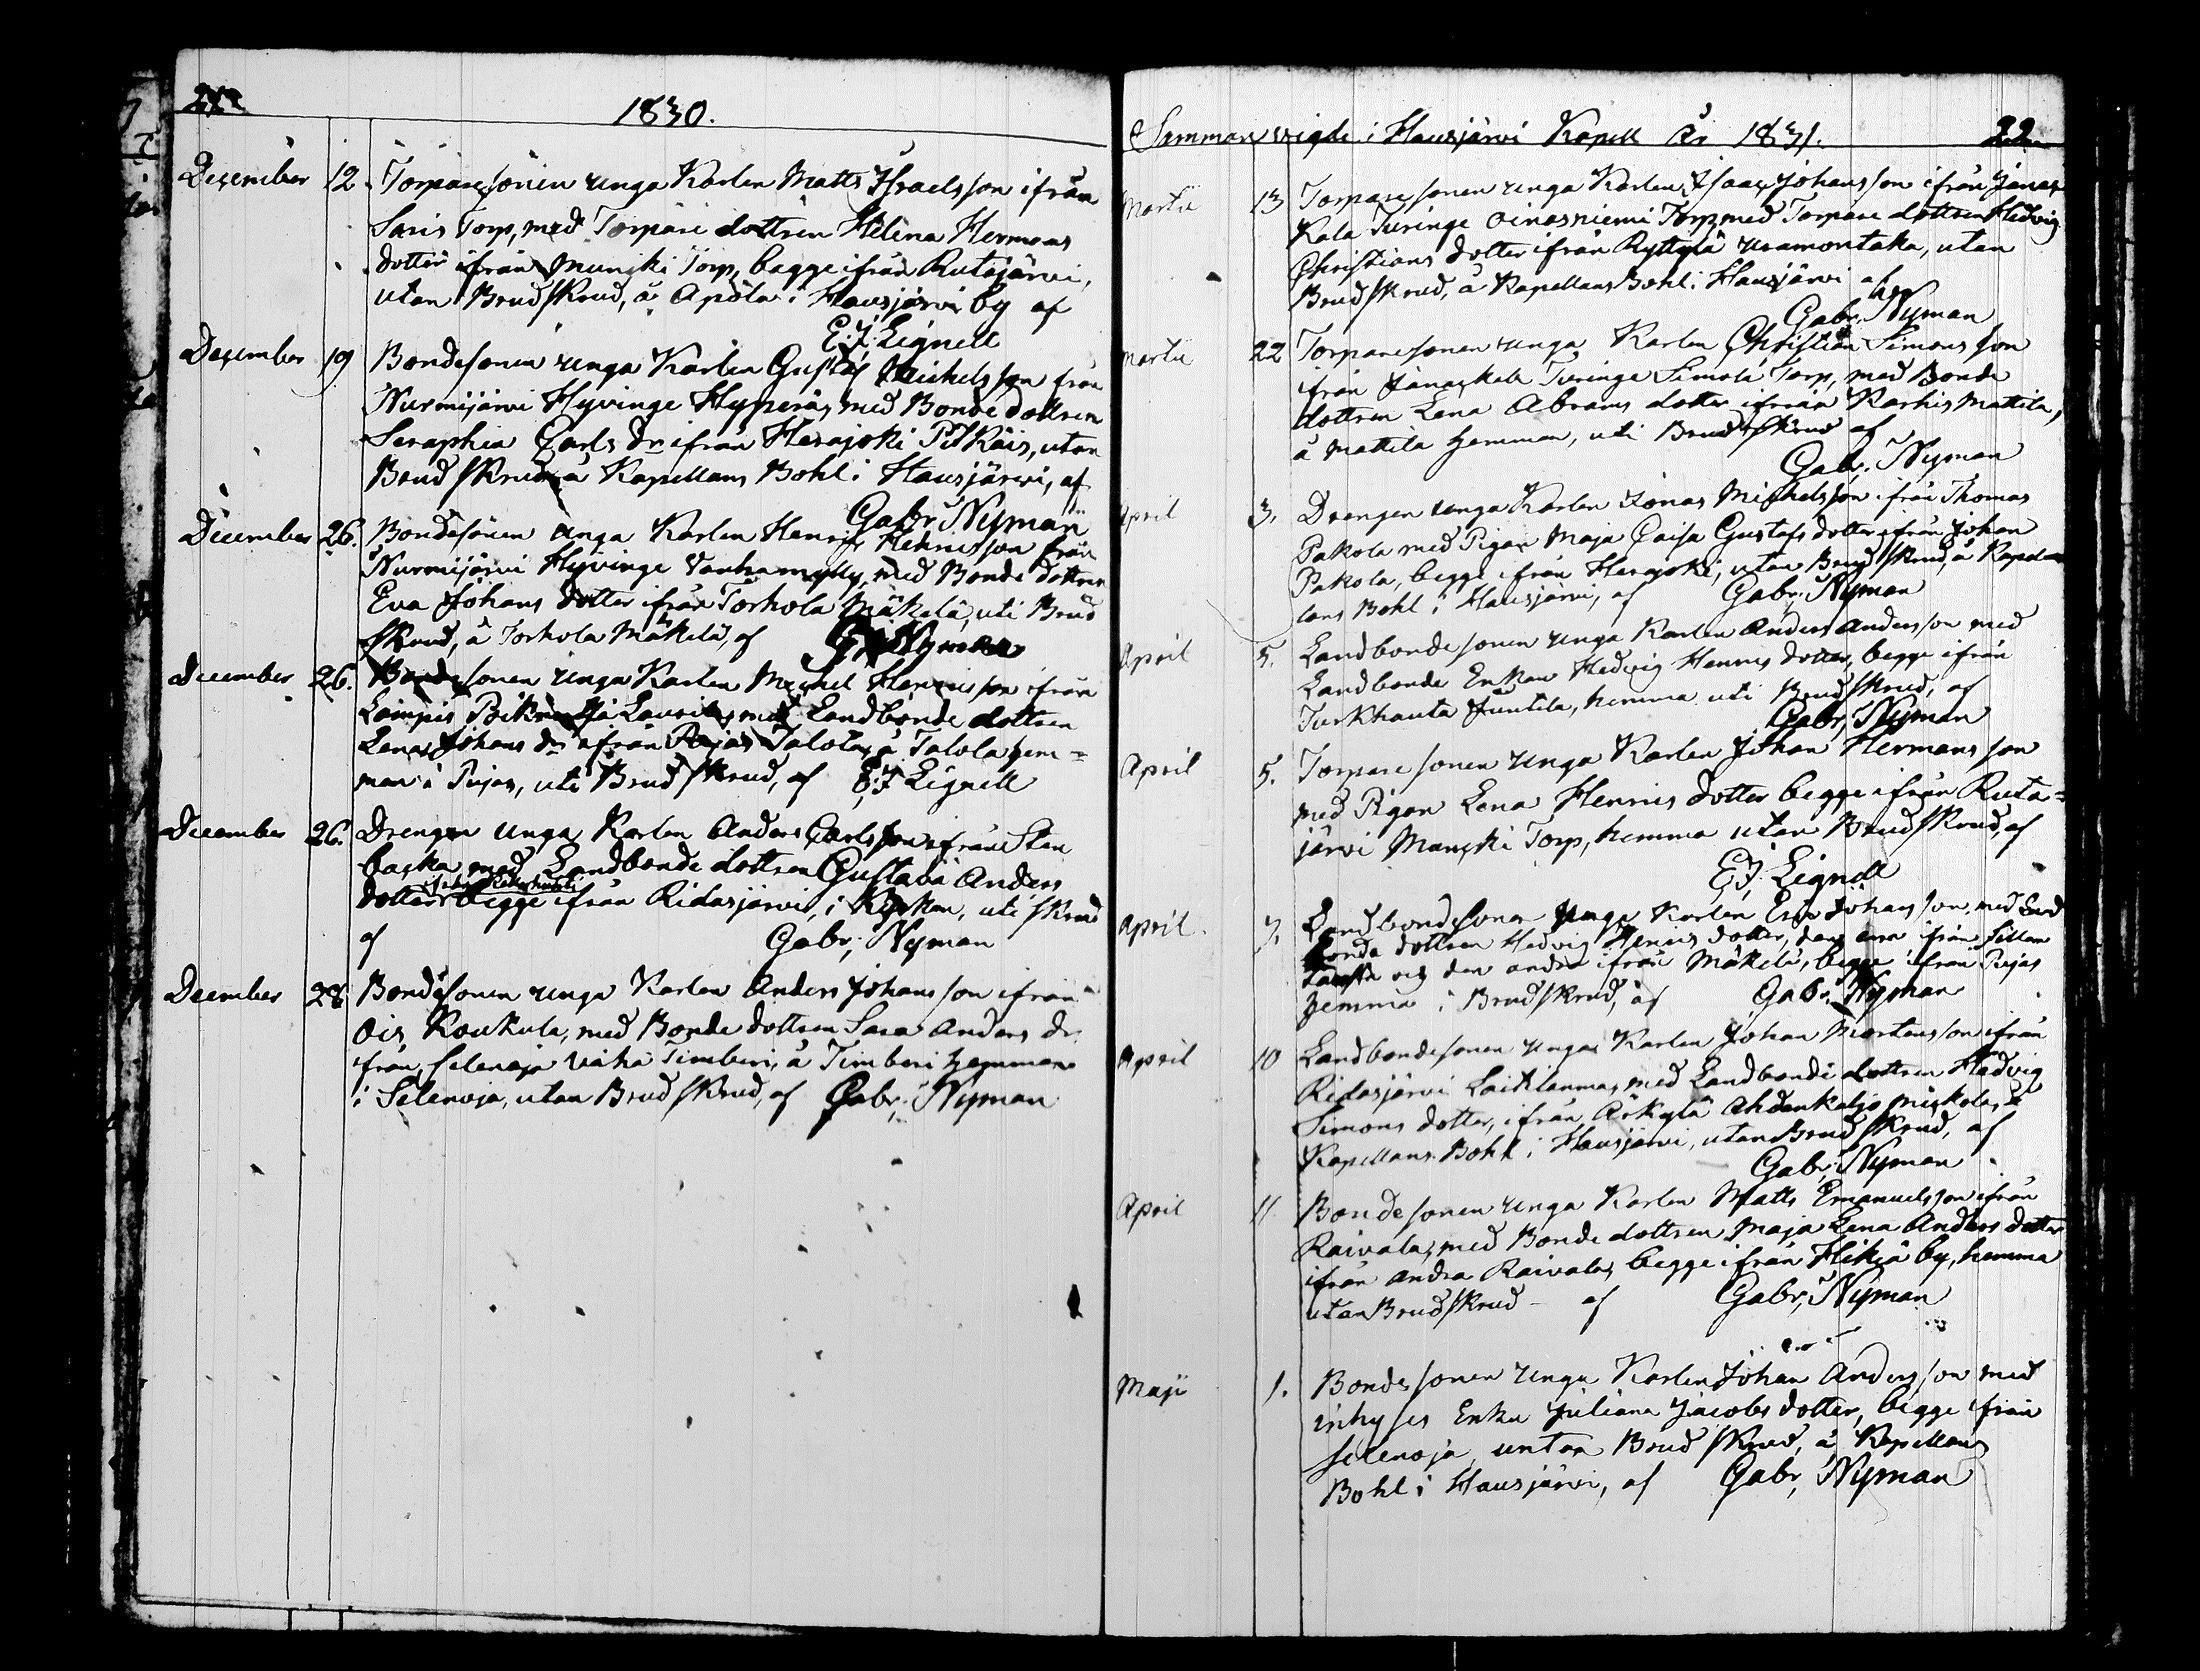 1830.
December 12. Torparesonen unga Karlen Matts Israelsson ifrån
Saris Torp, med Torpare dottren Helena Hermans
dotter ifrån Munski Torp, begge ifrån Rutajärvi,
utan Brudskrud, å Apola i Hausjärvi by af
E. J. Lignell
December 19 Bondesonen unga Karlen Gustaf Michelsson från
Nurmijärvi Hyvinge Hyperä, med Bonde dottren
Seraphia Carls dr ifrån Herajoki Pitkäis, utan
Brudskrud å Kapellans Bohl i Hausjärvi, af
Gabr. Nyman
December 26. Bondesonen unga Karlen Henric Henricsson från
Nurmijärvi Hyvinge Vanhamylly, med Bonde dottren
Eva Johans dotter ifrån Torhola Mäkelä, uti Brud
skrud, å Torhola Mäkelä, af G. Nyman
December 26. Bondesonen unga Karlen Michel Henricsson ifrån
Loimpis Laurila, med Landbonde dottren
Lena Johans dr ifrån Pujas Talola, å Talola hem=
man i Pujas, uti Brudskrud, af E. J. Lignell
December 26. Drengen unga Karlen Anders Carlsson ifrån Sten
backa med Landbonde dottren Gustava Anders
dotter begge ifrån Ridasjärvi, i Kyrkan, uti skrud
af Gabr. Nyman
December 28 Bondesonen unga Karlen Anders Johansson ifrån
Ois, Koukula, med Bonde dottren Sara Anders dr.
från Selenoja Vähä Timberi, å Timberi hemman
i Selenoja, utan Brudskrud, af Gabr. Nyman
Sammanvigde i Hausjärvi Kapell År 1831. 22
Martii 13 Torparesonen unga Karlen Isaac Johansson ifrån Janac
Kala Turinge Oinasniemi Torp, med Torpare dottren Hedvig
Christians dotter ifrån Ryttylä Uramontaka, utan
Brudskrud, å Kapellans Bohl i Hausjärvi af
Gabr. Nyman
Martii 22 Torparesonen unga Karlen Christian Simonsson
ifrån Janackala Turinge Simola Torp, med Bonde
dottren Lena Abrams dotter ifrån Karhis Mattila,
å Mattila hemman, uti Brudskrud af
Gabr. Nyman
April 3. Drengen unga Karlen Jonas Michelsson ifrån Thomas
Pakola med Pigan Maja Caisa Gustafs dotter ifrån Johan
Pakola, begge ifrån Herajoki, utan Brudskrud, å Kapel
lans Bohl i Hausjärvi, af Gabr. Nyman
April 5. Landbondesonen unga Karlen Anders Andersson med
Landbonde Enkan Hedvig Henrics dotter, begge ifrån
Turkhauta Juntila, hemma uti Brudskrud, af
Gabr. Nyman
April 5. Torparesonen unga Karlen Johan Hermansson
med Pigan Lena Henrics dotter begge ifrån Ruta=
järvi Munski Torp, hemma utan Brudskrud, af
E. J. Lignell
April. 7. Landbondesonen unga Karlen Eric Johansson, med Land
bonde dottren Hedvig Henrics dotter, den ena från
och den andra ifrån Mäkelä, begge ifrån Pujas
hemma i Brudskrud, af Gabr. Nyman
April 10 Landbondesonen unga Karlen Johan Mårtensson ifrån
Ridasjärvi Laitilanma, med Landbonde dottren Hedvig
Simons dotter, ifrån Ärkylä Ahdenkaljo Miskola, å
Kapellans Bohl i Hausjärvi, utan Brudskrud, af
Gabr. Nyman
April 11 Bondesonen unga Karlen Matts Emanuelsson ifrån
Raivala, med Bonde dottren Maja Lena Anders dotter
ifrån andra Raivala, begge ifrån Hikiä by, hemma
utan Brudskrud - af Gabr. Nyman
Maji 1. Bondesonen unga Karlen Johan Andersson med
inhyses Enka Juliana Jacobs dotter, begge ifrån
Selenoja, untan Brudskrud, å Kapellans
Bohl i Hausjärvi, af Gabr. Nyman